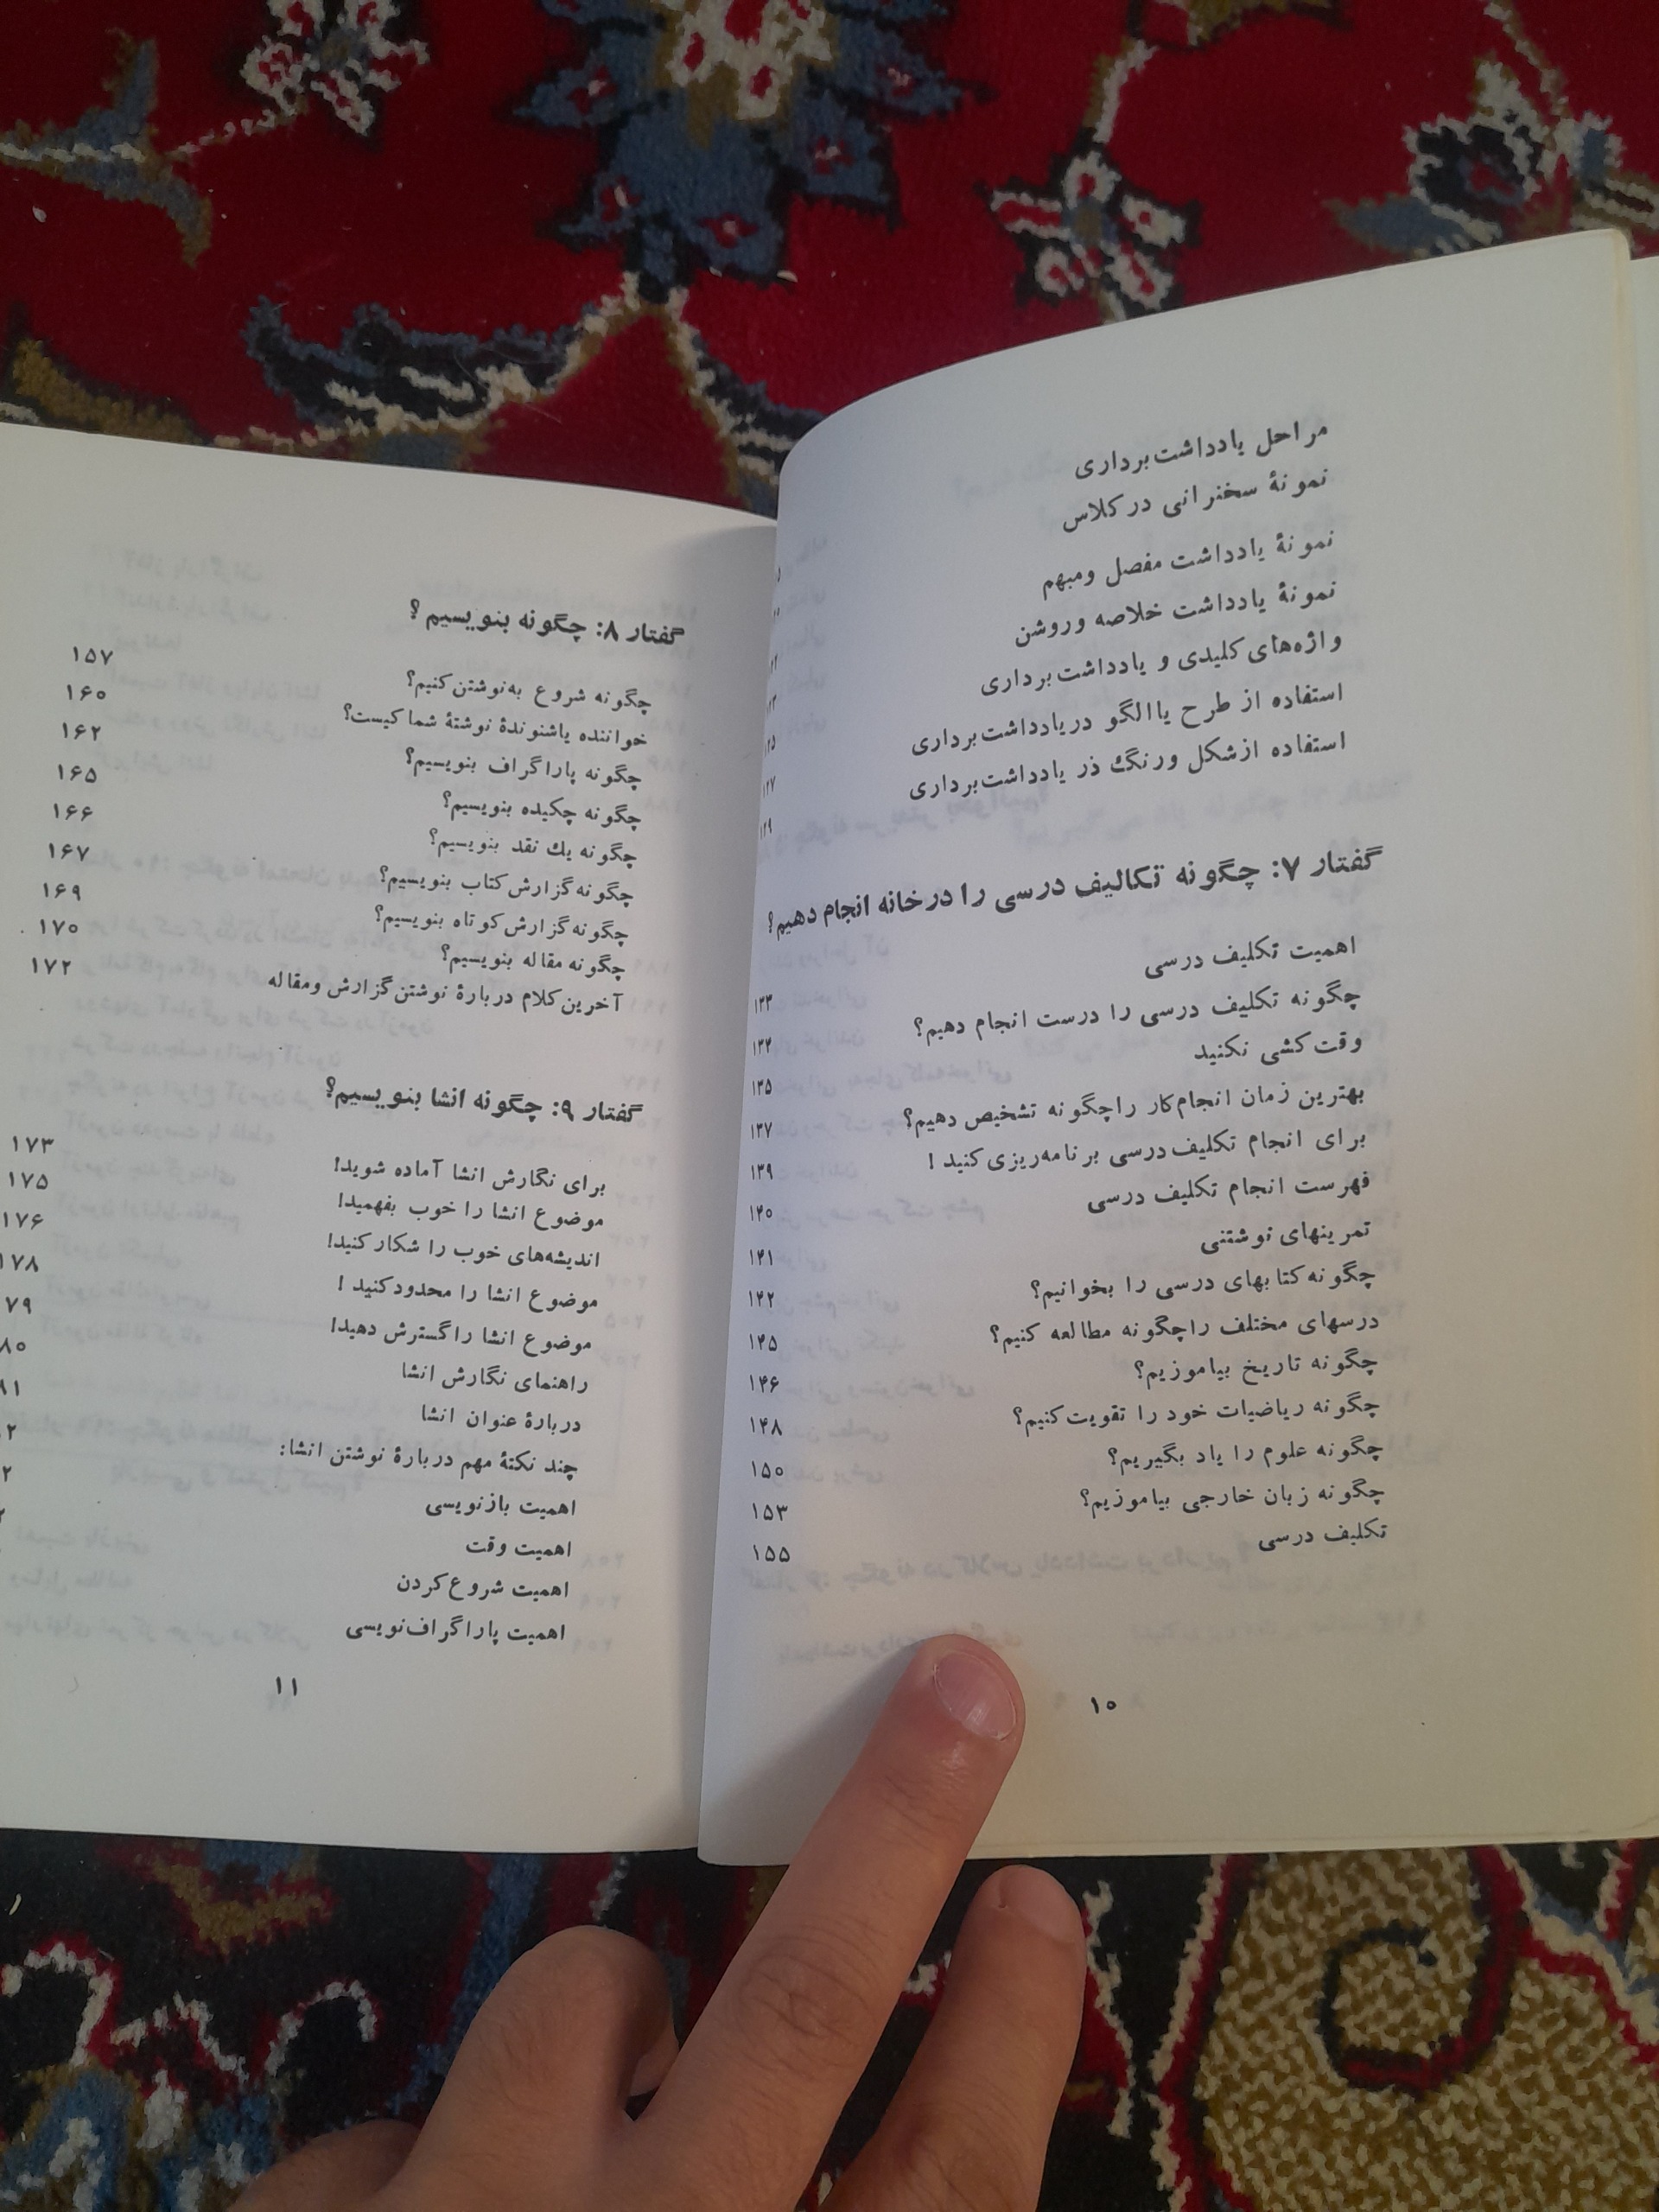 مراحل یادداشت‌برداری
نمونهٔ سخنرانی در کلاس
نمونهٔ یادداشت مفصل ومبهم
نمونهٔ یادداشت خلاصه وروشن
واژه‌های کلیدی و یادداشت‌برداری
استفاده از طرح یاالگو دریادداشت‌برداری
استفاده ازشکل ورنگ ذر یادداشت‌برداری ۱۲۹
گفتار ۷: چگونه تکالیف درسی را درخانه انجام دهیم؟
اهمیت تکلیف درسی ۱۳۳
چگونه تکلیف درسی را درست انجام دهیم؟ ۱۳۴
وقت‌کشی نکنید ۱۳۵
بهترین زمان انجام‌کار راچگونه تشخیص دهیم؟ ۱۳۷
برای انجام تکلیف‌درسی برنامه‌ریزی‌کنید! ۱۳۹
فهرست انجام تکلیف درسی ۱۴۰
تمرینهای نوشتنی ۱۴۱
چگونه‌کتابهای درسی را بخوانیم؟ ۱۴۲
درسهای مختلف راچگونه مطالعه کنیم؟ ۱۴۵
چگونه تاریخ بیاموزیم؟ ۱۴۶
چگونه ریاضیات خود را تقویت‌کنیم؟ ۱۴۸
چگونه علوم را یاد بگیریم؟ ۱۵۰
چگونه زبان خارجی بیاموزیم؟ ۱۵۳
تکلیف درسی ۱۵۵
۱۰
گفتار ۸: چگونه بنویسیم؟
چگونه شروع به‌نوشتن‌کنیم؟ ۱۵۷
خواننده یاشنوندهٔ نوشتهٔ شماکیست؟ ۱۶۰
چگونه پاراگراف بنویسیم؟ ۱۶۲
چگونه چکیده بنویسیم؟ ۱۶۵
چگونه یك نقد بنویسیم؟ ۱۶۶
چگونه‌گزارش‌کتاب بنویسیم؟ ۱۶۷
چگونه‌گزارش‌کوتاه بنویسیم؟ ۱۶۹
چگونه مقاله بنویسیم؟ ۱۷۰
آخرین‌کلام دربارهٔ نوشتن‌گزارش ومقاله ۱۷۲
گفتار ۹: چگونه انشا بنویسیم؟
برای نگارش انشا آماده شوید! ۱۷۳
موضوع انشا را خوب بفهمید! ۱۷۵
اندیشه‌های خوب را شکارکنید! ۱۷۶
موضوع انشا را محدودکنید! ۱۷۸
موضوع انشا راگسترش دهید! ۷۹
راهنمای نگارش انشا ۸۰
دربارهٔ عنوان انشا
چند نکتهٔ مهم دربارهٔ نوشتن انشا:
اهمیت بازنویسی
اهمیت وقت
اهمیت شروع‌کردن
اهمیت پاراگراف‌نویسی
۱۱